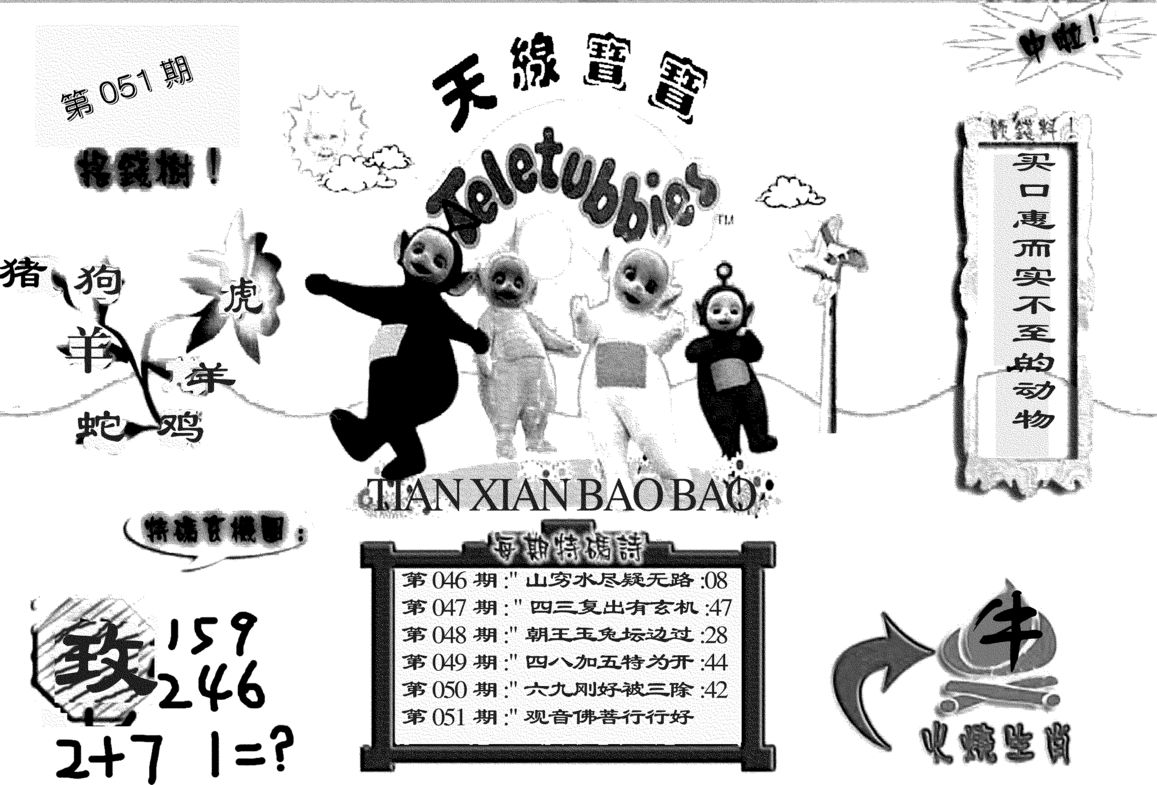 第 051 期
摇錢樹！
猪 狗
虎
羊
羊
蛇 鸡
天線寶寶
Teletubbies TM
TIAN XIAN BAO BAO
中啦！
买口惠而实不至的动物
特碼玄機圖：
致 159
246
2+7 1=?
每期特碼詩
第 046 期 :" 山穷水尽疑无路 :08
第 047 期 :" 四三复出有玄机 :47
第 048 期 :" 朝王玉兔坛边过 :28
第 049 期 :" 四八加五特为开 :44
第 050 期 :" 六九刚好被三除 :42
第 051 期 :" 观音佛菩行行好
牛
火燒生肖